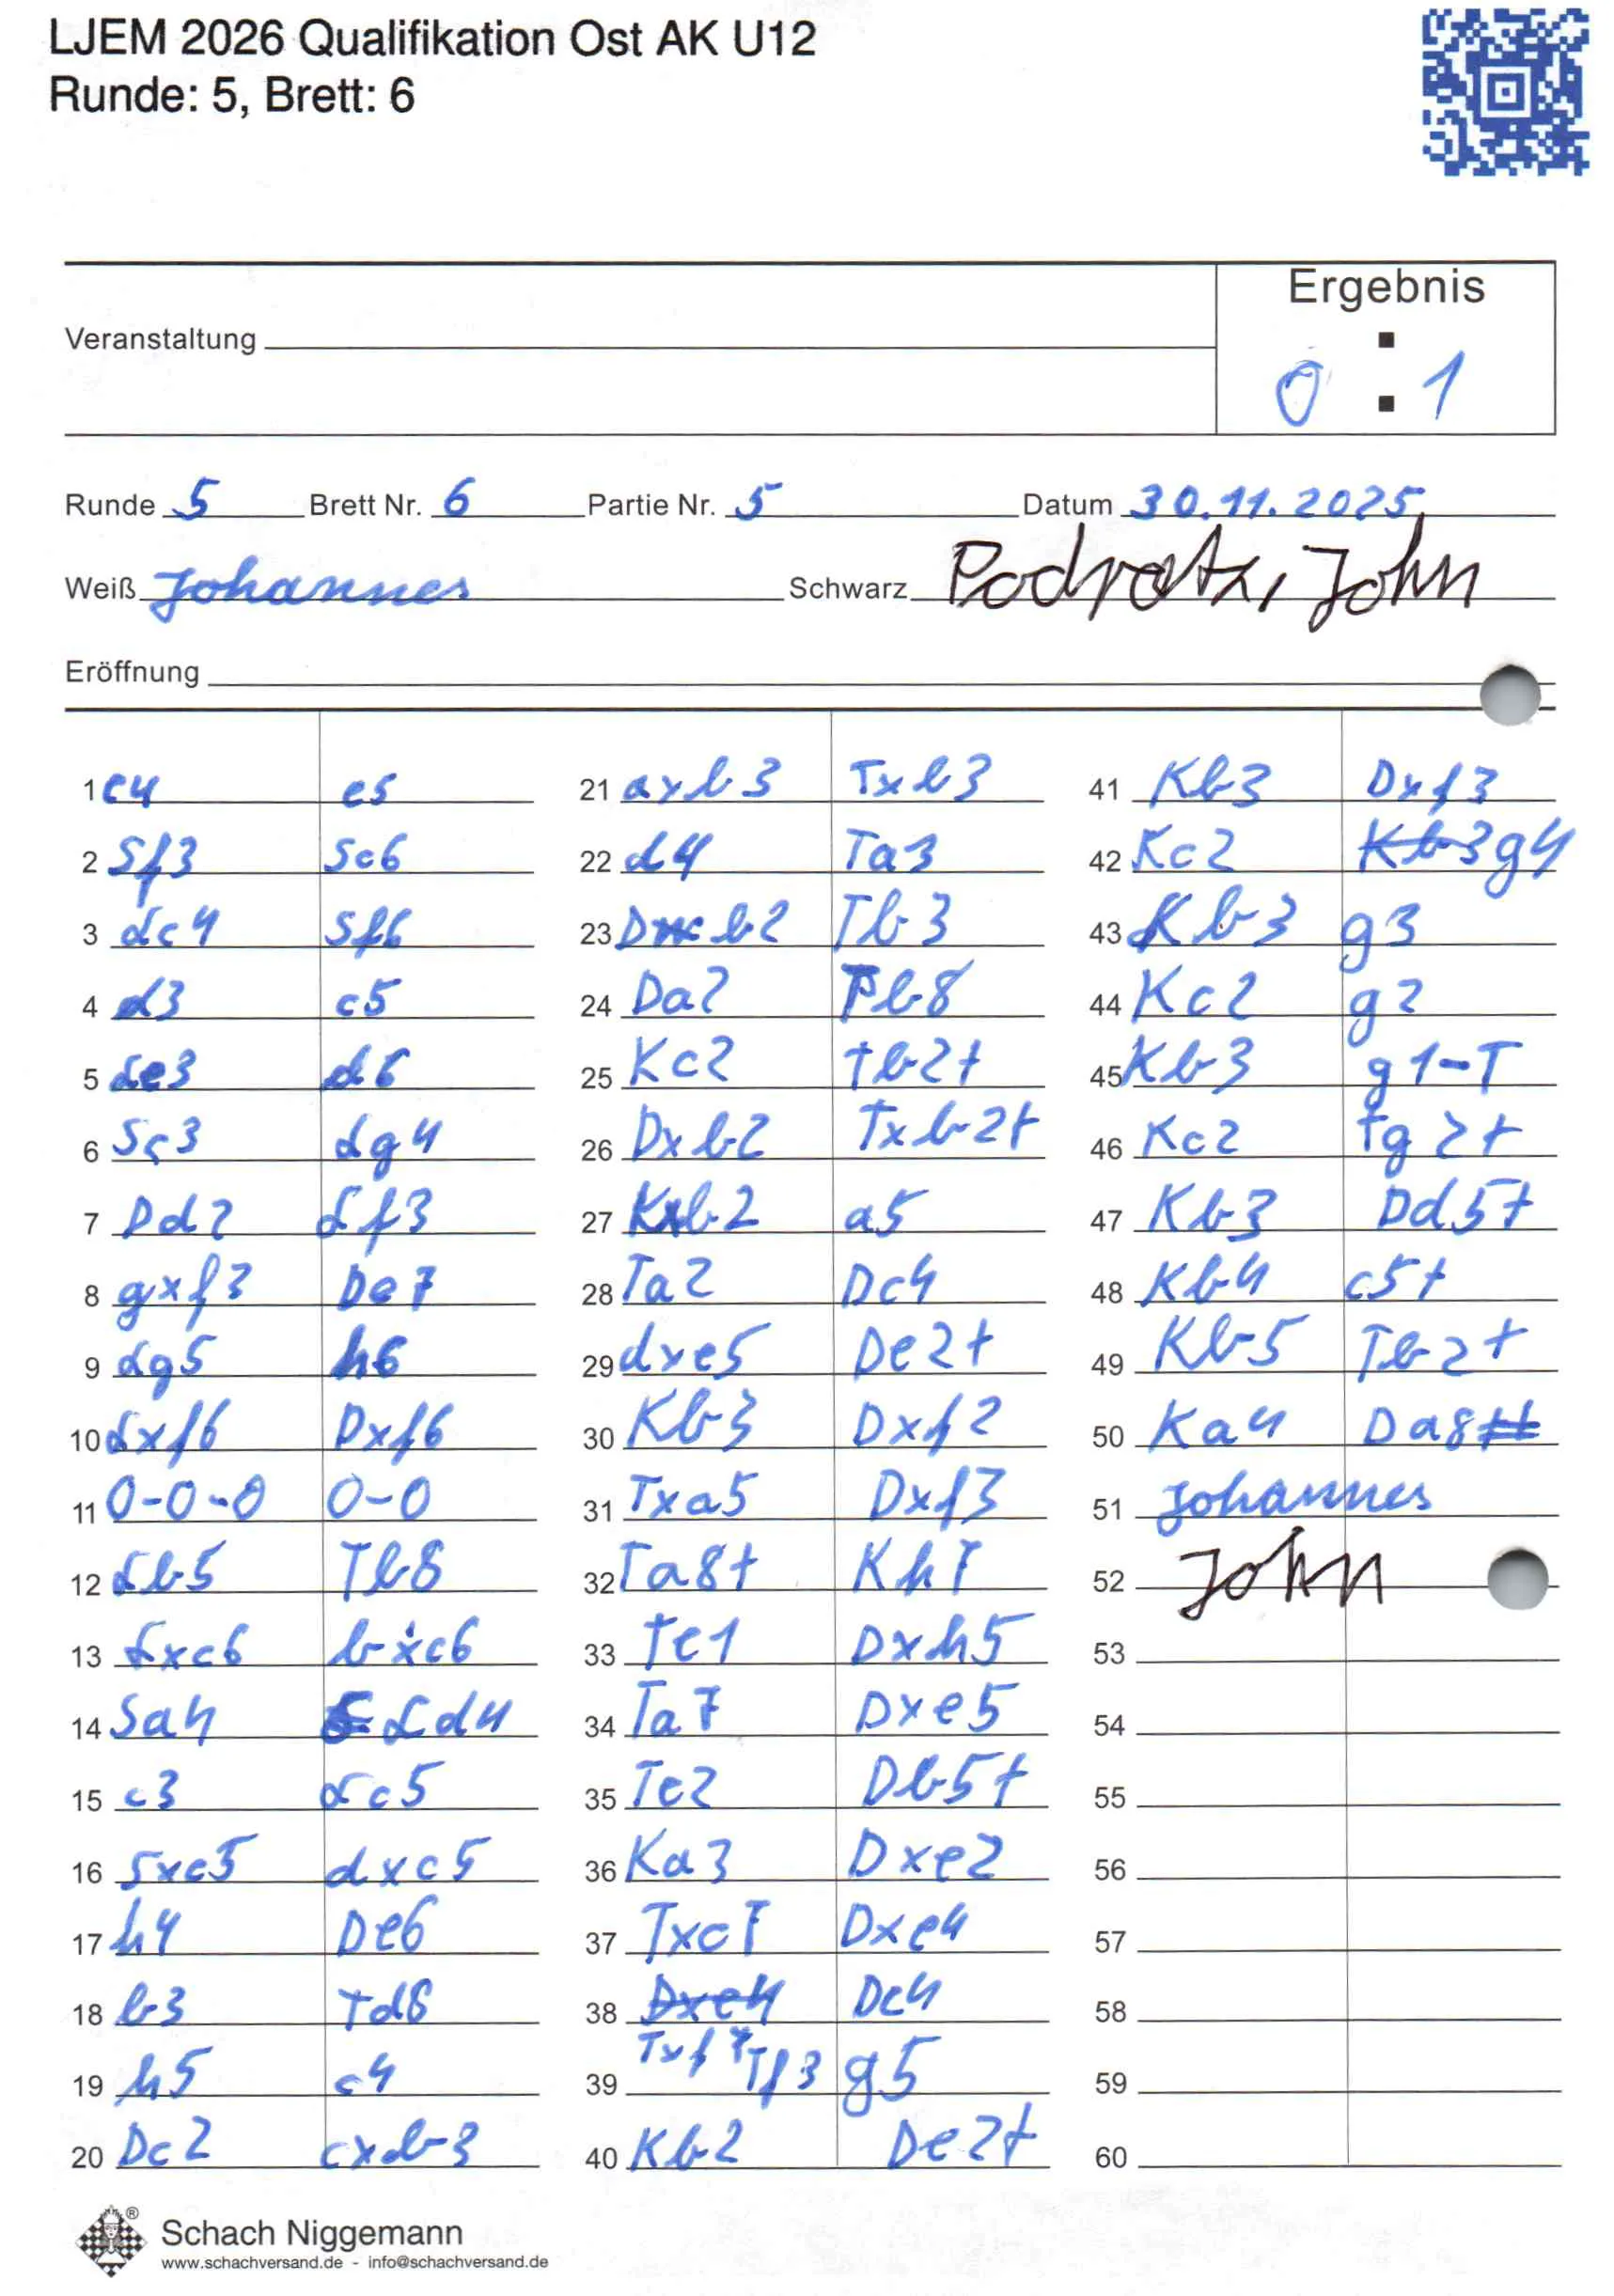 LJEM 2026 Qualifikation Ost AK U12
Runde: 5, Brett: 6
Ergebnis
Veranstaltung
0 : 1
Runde 5 Brett Nr. 6 Partie Nr. 5 Datum 30.11.2025
Weiß Johannes Schwarz Podratz, John
Eröffnung
1 e4 e5
2 Sf3 Sc6
3 Lc4 Sf6
4 d3 c5
5 Le3 d6
6 Sc3 Lg4
7 Dd2 Lf3
8 gxf3 De7
9 Lg5 h6
10 Lxf6 Dxf6
11 0-0-0 0-0
12 Lb5 Tb8
13 Lxc6 bxc6
14 Sa4 Ld4
15 c3 Lc5
16 Sxc5 dxc5
17 h4 De6
18 b3 Td8
19 h5 c4
20 Dc2 cxb3
21 axb3 Txb3
22 d4 Ta3
23 Db2 Tb3
24 Da2 Tb8
25 Kc2 Tb2+
26 Dxb2 Txb2+
27 Kxb2 a5
28 Ta2 Dc4
29 dxe5 De2+
30 Kb3 Dxf2
31 Txa5 Dxf3
32 Ta8+ Kh7
33 Te1 Dxh5
34 Ta7 Dxe5
35 Te2 Db5+
36 Ka3 Dxe2
37 Txc7 Dxe4
38 Dxe4 Dc4
Txf7
39 Tf3 g5
40 Kb2 De2+
41 Kb3 Dxf3
42 Kc2 Kb3 g4
43 Kb3 g3
44 Kc2 g2
45 Kb3 g1-T
46 Kc2 Tg2+
47 Kb3 Dd5+
48 Kb4 c5+
49 Kb5 Tb2+
50 Ka4 Da8#
51 Johannes
52 John
53
54
55
56
57
58
59
60
Schach Niggemann
www.schachversand.de - info@schachversand.de